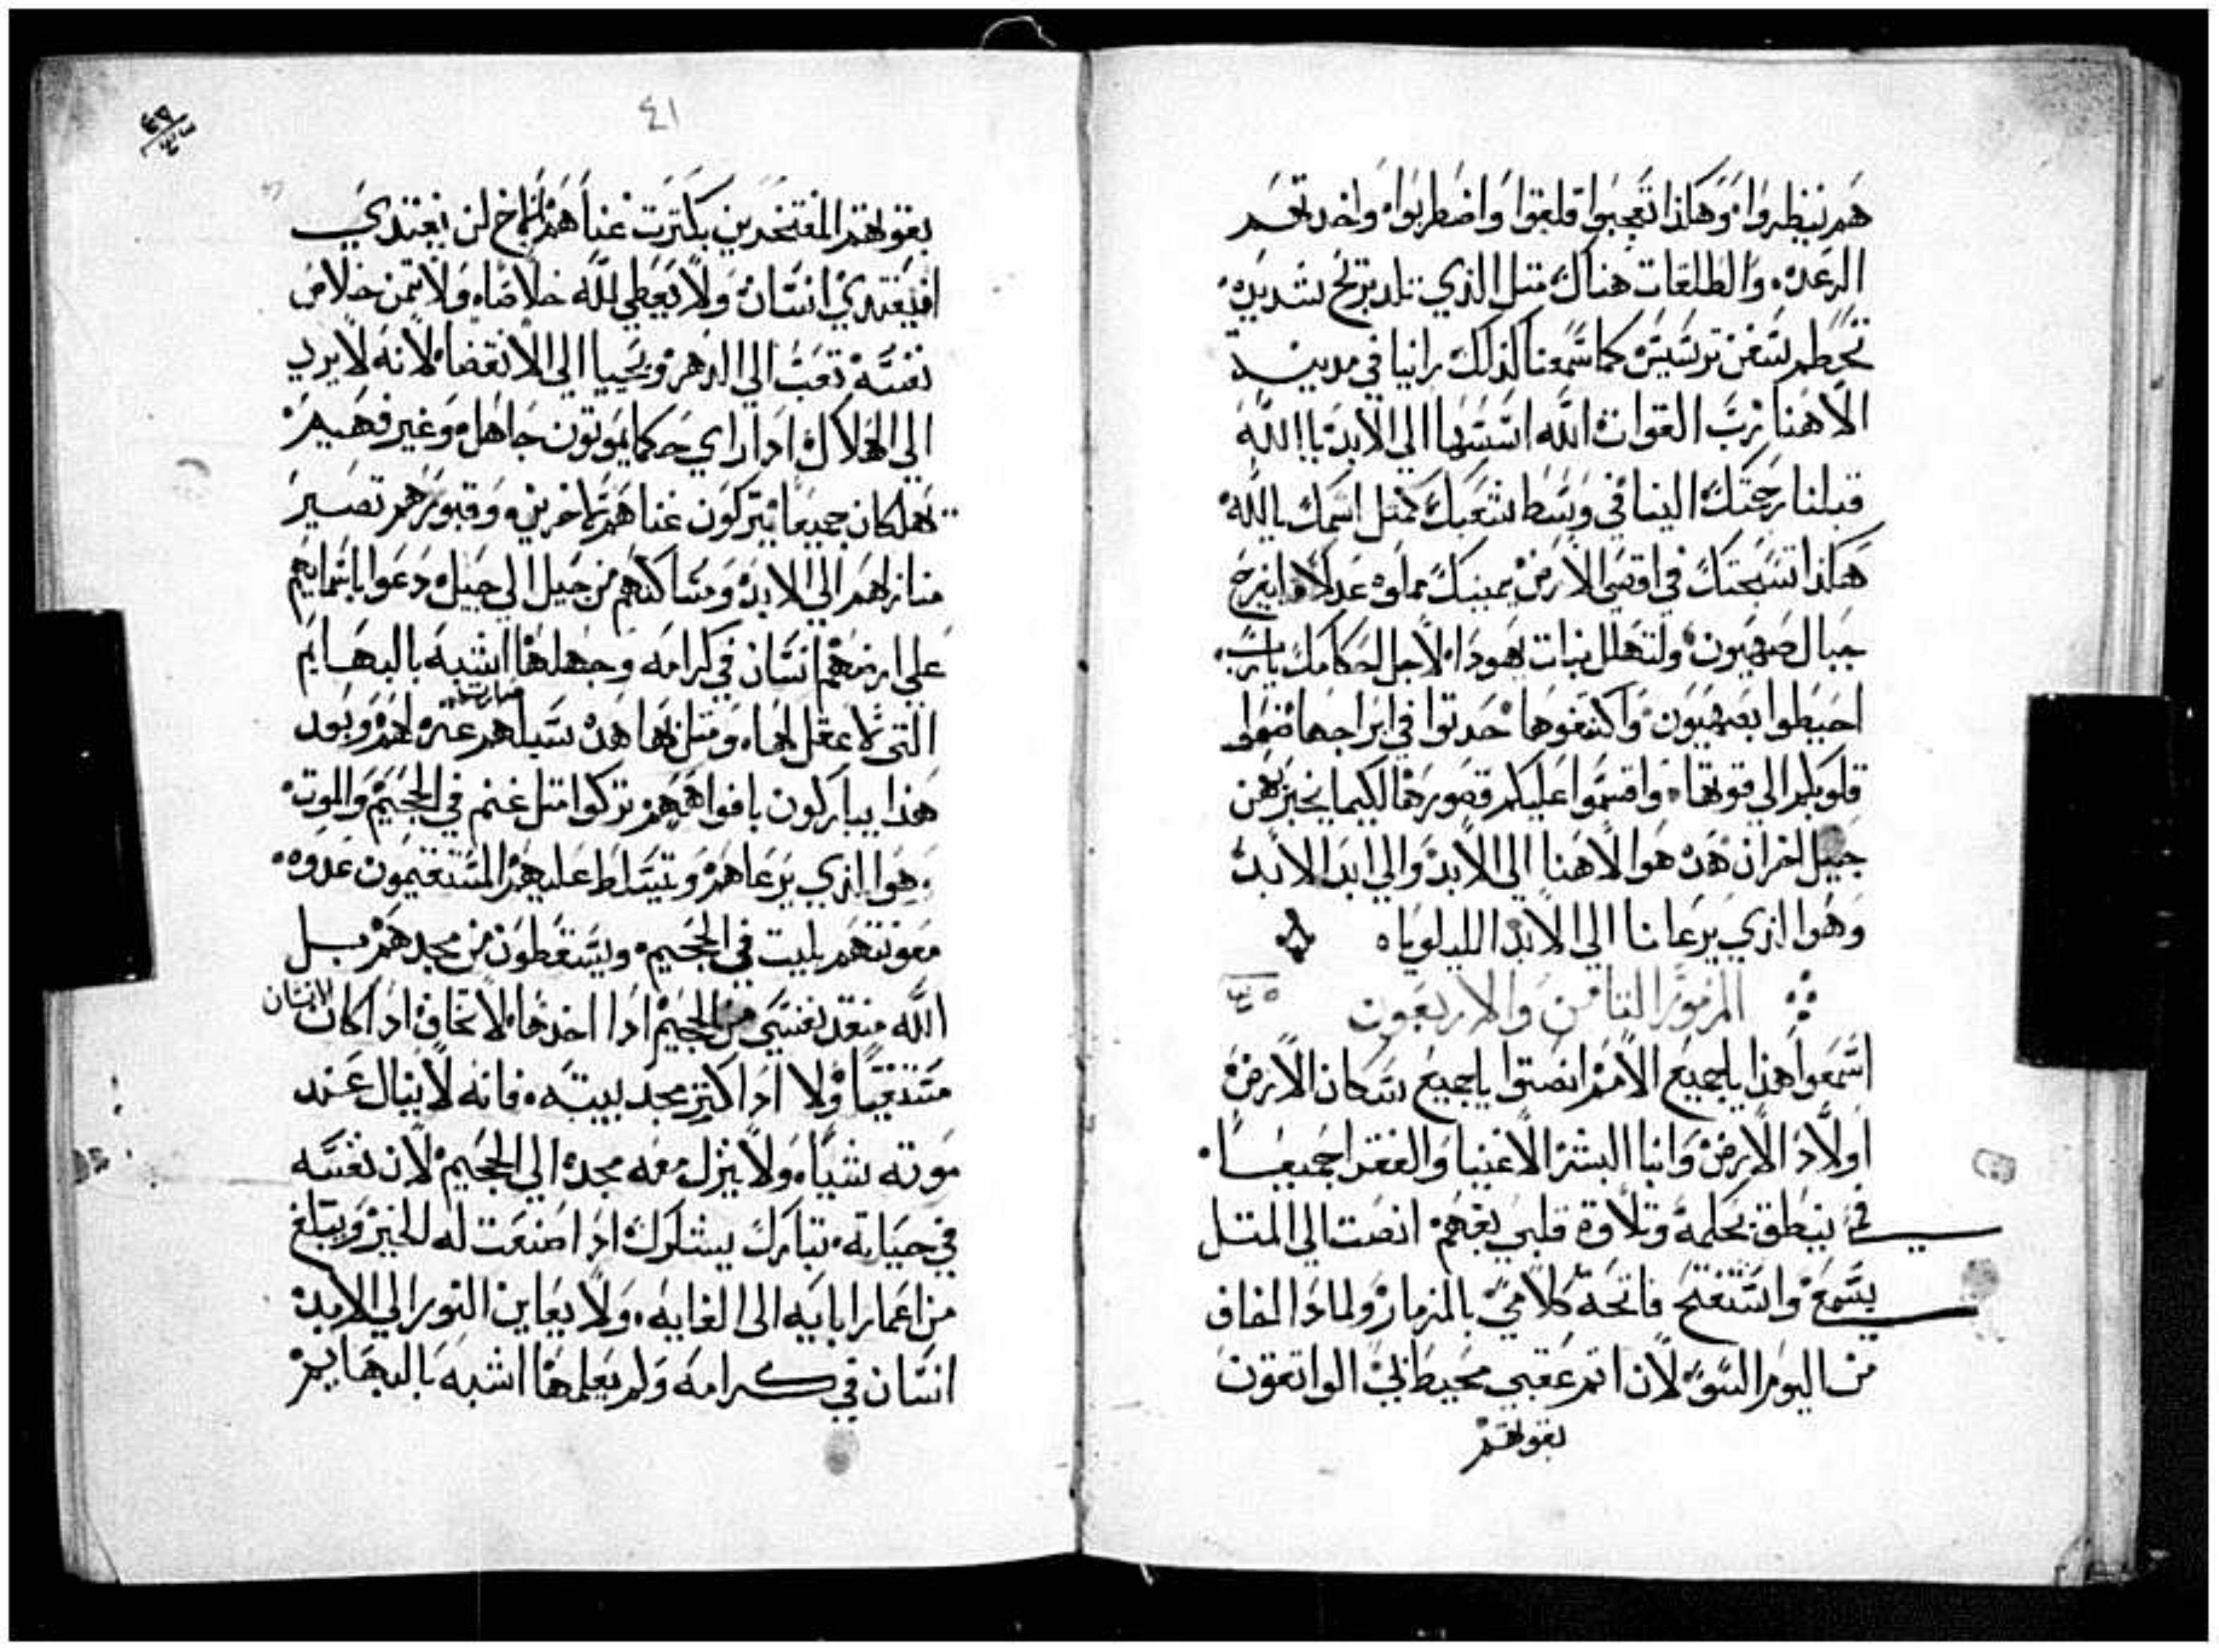 هم نيظروا وهاكذا تعجبوا قلقوا واضطربوا واخدتهم
الرعده والطلقات هناك متل الذي تلد بريح شديده
تحطم سفن ترسيس كما سمعنا كذلك راينا في مدينة
الاهنا رب القوات الله اسسها الي الابد يا الله
قبلنا رحمتك الينا في وسط شعبك كمتل اسمك يا الله
هكذا تسبحتك في اقصي الارض يمينك مملوه عدلا فليفرح
جبال صهيون ولتهلل بنات يهودا لاجل احكامك يارب
احيطوا بصهيون واكتنفوها حدتوا في ابراجها ضعوا
قلوبكم الي قوتها واقسموا عليكم قصورها لكيما يخبرهن
جيل اخر ان هده هوا لاهنا الي الابد والي ابد الابد
وهوا الذي يرعانا الي الابد الليلويا
المزمور التامن والاربعون
اسمعوا هذا ياجميع الامم انصتوا ياجميع سكان الارض
اولاد الارض وابنا البشر الاغنيا والفقرا جميعا
في ينطق بحكمة وتلاوة قلبي بفهم انصت الي المتل
بسمع واستفتح فاتحة كلامي بالمزمار ولمادا اخاف
من اليوم السو لان اتم عقبي محيط بي الواتقون
بقوتهم
٤١
٤٩
بقوتهم المفتخرين بكترت غناهم اخ لن يفتدي
افيفتدي انسان ولا يعطي لله خلاصا ولا تمن خلاص
نفسه تعب الي الدهر ويحييا الي الانقضا لانه لا يري
الي الهلاك ادا راي حكما يموتون جاهل وغير فهيم
يهلكان جميعا يتركون غناهم لاخرين وقبورهم تصير
منازلهم الي الابد ومساكنهم من جيل الي جيل دعوا باسمايهم
علي ارضهم انسان في كرامه وجهلها اشبه بالبهايم
التي لا عقل لها ومتل بها هده سبلهم صارت عتره لهم وبعد
هذا يباركون بافواههم تركوا متل غنم في الجحيم والموت
وهوا الذي يرعاهم وتسلط عليهم المستقيمون غدوه
معونتهم بليت في الجحيم ويسقطون من مجدهم بل
الله منقد نفسي من الجحيم ادا اخدها لا تخاف ادا كان الانسان
مستغنيا ولا ادا اكتر مجد بيته فانه لا ينال عند
موته شيا ولا ينزل معه مجده الي الجحيم لان نفسه
في حياته تبارك يشكرك ادا صنعت له الخير ويبلغ
من اعمار ابايه الى الغايه ولا يعاين النور الي الابد
انسان في كرامه ولم يعلمها اشبه بالبهايم